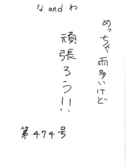 な and わ
めっちゃ雨多いけど
頑張ろう!!
第474号